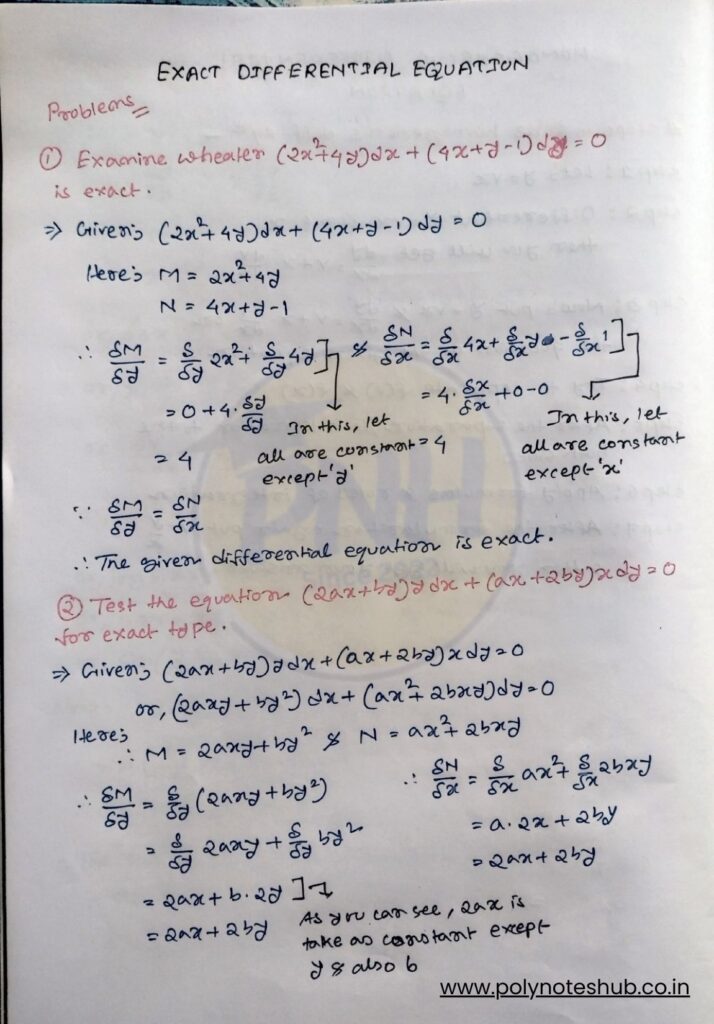 EXACT DIFFERENTIAL EQUATION
Problems
① Examine wheater (2x²+4y)dx + (4x+y-1)dy = 0
is exact.
⇒ Given; (2x²+4y)dx + (4x+y-1)dy = 0
Here; M = 2x²+4y
N = 4x+y-1
∴ δM/δy = δ/δy 2x² + δ/δy 4y] & δN/δx = δ/δx 4x + δ/δx y - δ/δx 1]
= 0 + 4·δy/δy
In this, let
all are constant
except 'y'
= 4
= 4·δx/δx + 0-0
= 4
In this, let
all are constant
except 'x'
∵ δM/δy = δN/δx
∴ The given differential equation is exact.
② Test the equation (2ax+by)y dx + (ax+2by)x dy = 0
for exact type.
⇒ Given; (2ax+by)y dx + (ax+2by)x dy = 0
or, (2axy+by²) dx + (ax²+2bxy)dy = 0
Here;
∴ M = 2axy+by² & N = ax²+2bxy
∴ δM/δy = δ/δy (2axy+by²)
= δ/δy 2axy + δ/δy by²
= 2ax + b·2y]
= 2ax + 2by
As you can see, 2ax is
take as constant except
y & also b
∴ δN/δx = δ/δx ax² + δ/δx 2bxy
= a·2x + 2by
= 2ax + 2by
PNH
www.polynoteshub.co.in